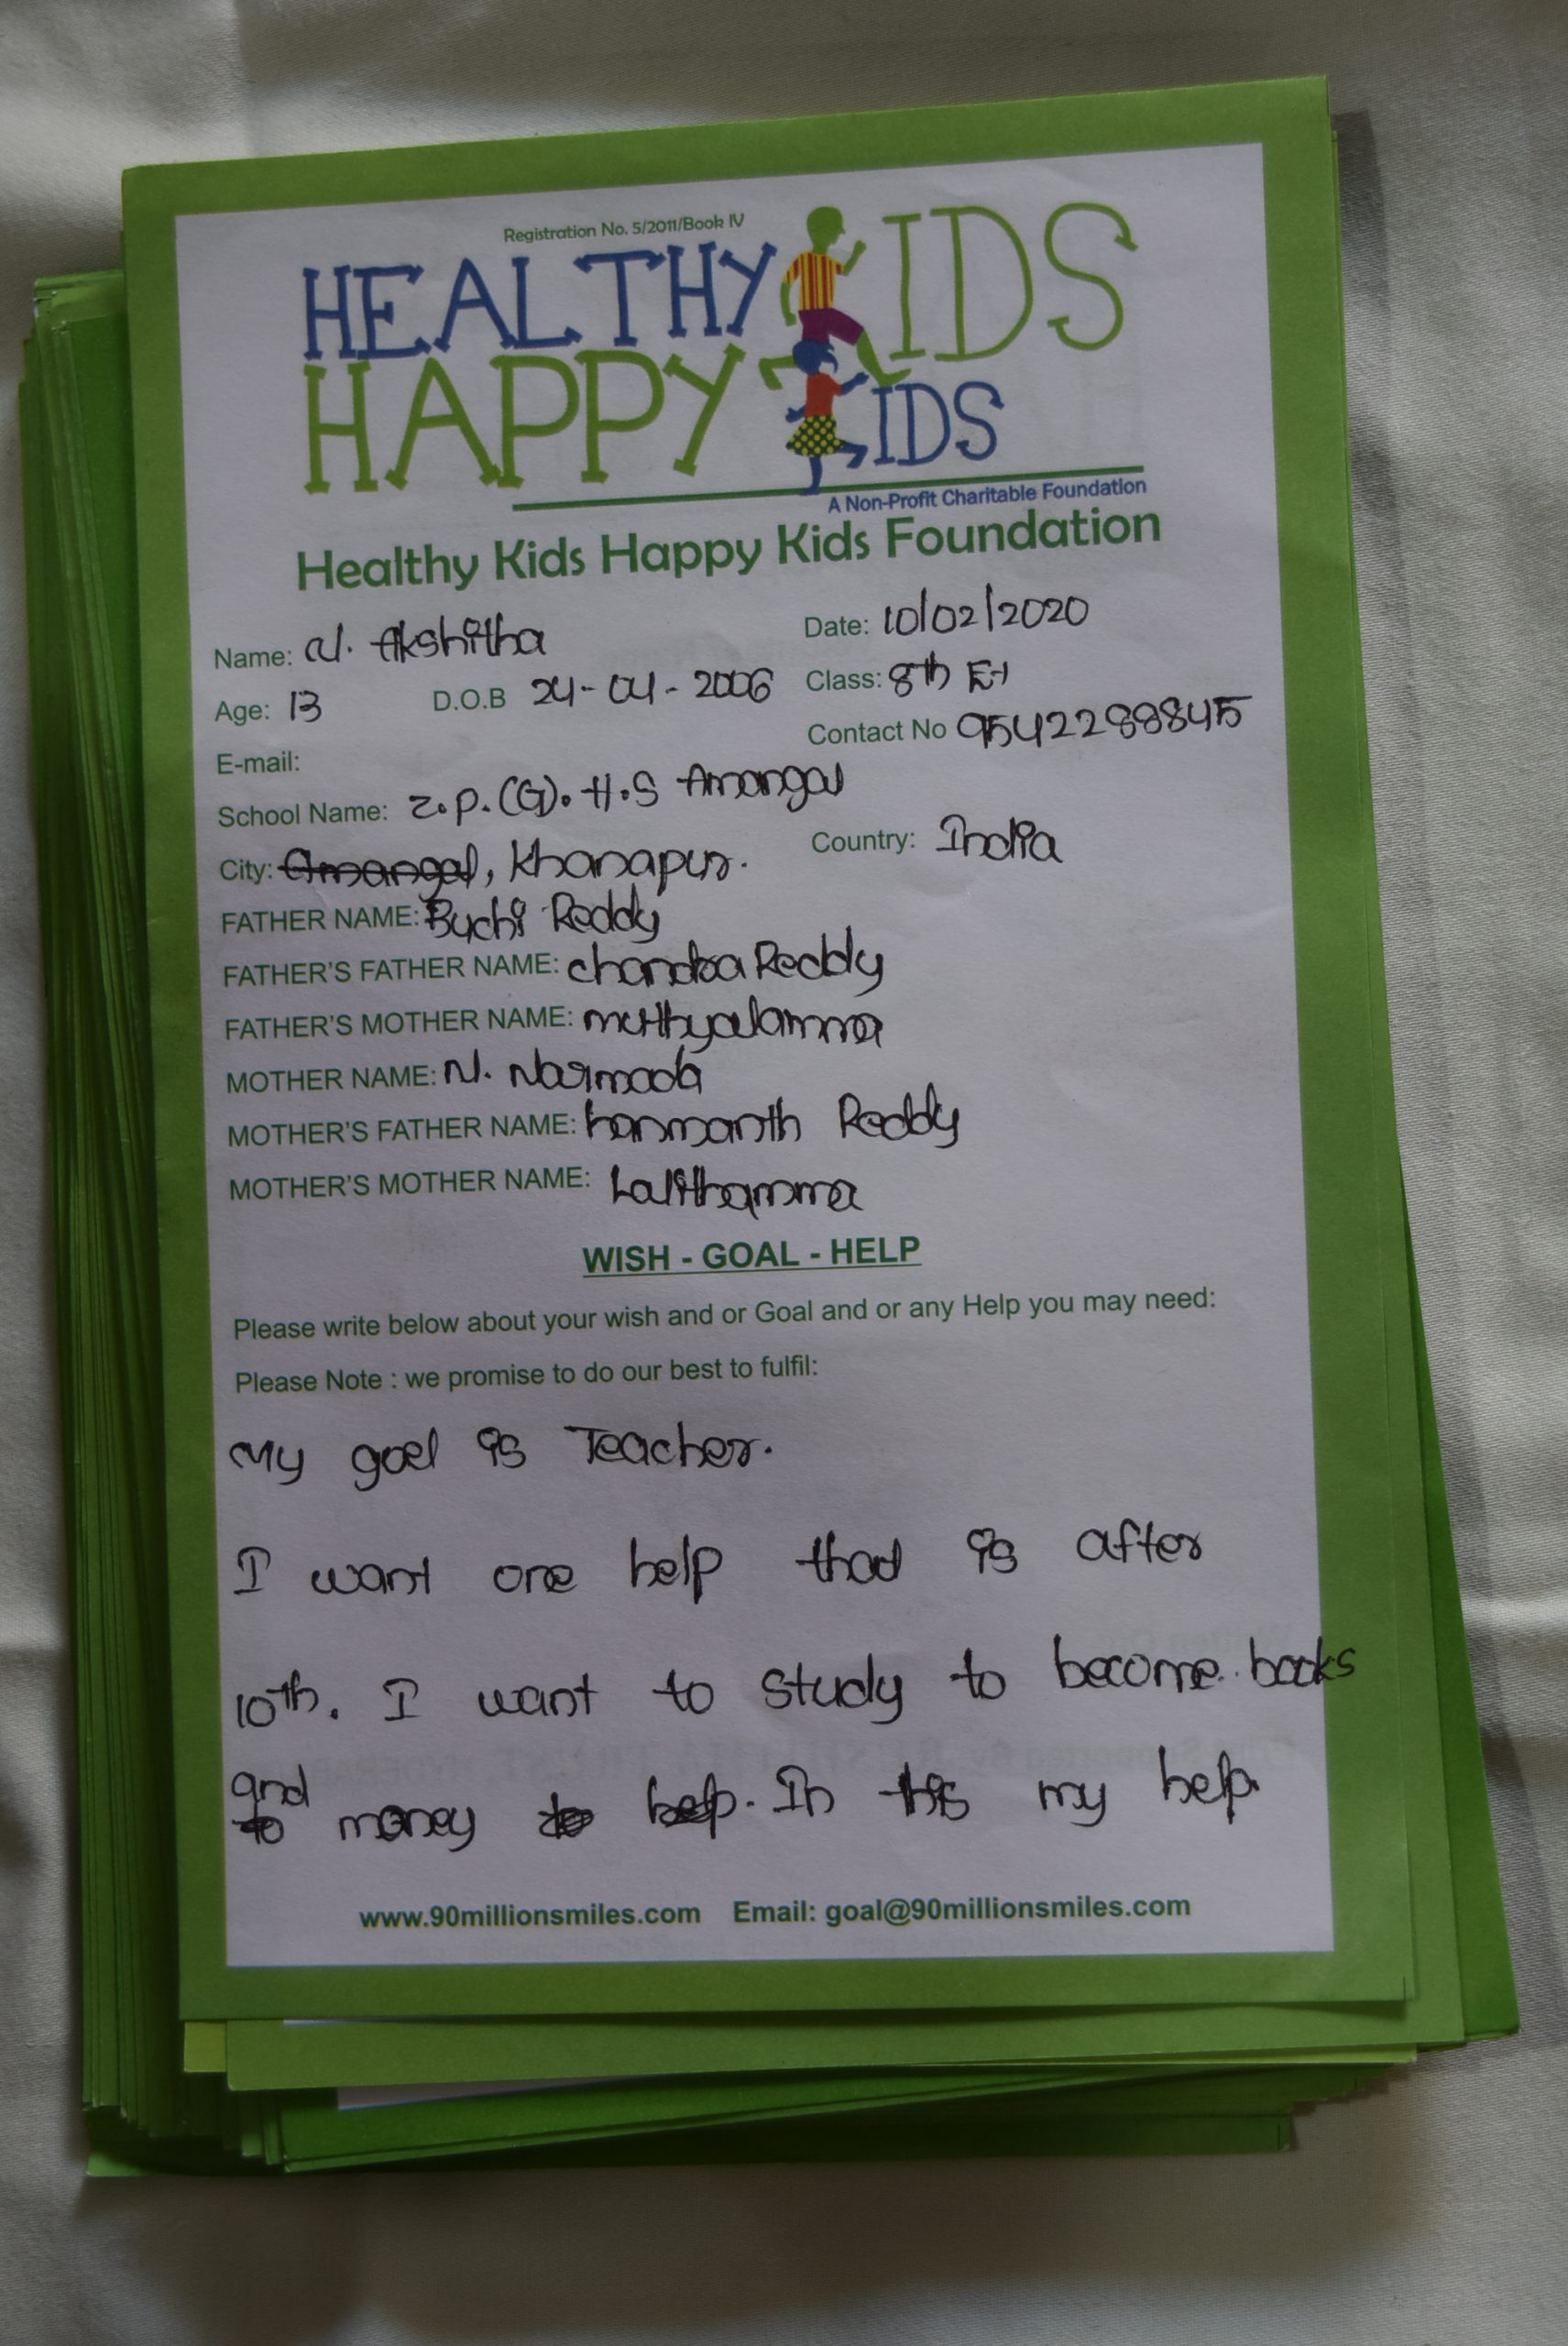 Registration No. 5/2011/Book IV
HEALTHY KIDS
HAPPY KIDS
A Non-Profit Charitable Foundation
Healthy Kids Happy Kids Foundation
Name: N. Akshitha Date: 10/02/2020
Age: 13 D.O.B 24-04-2006 Class: 8th E-1
E-mail: Contact No 9542288845
School Name: Z.P.(G).H.S Amangal
City: Amangal, Khanapur. Country: India
FATHER NAME: Buchi Reddy
FATHER'S FATHER NAME: chandra Reddy
FATHER'S MOTHER NAME: muthyalamma
MOTHER NAME: N. Narmada
MOTHER'S FATHER NAME: hanmanth Reddy
MOTHER'S MOTHER NAME: Lalithamma
WISH - GOAL - HELP
Please write below about your wish and or Goal and or any Help you may need:
Please Note : we promise to do our best to fulfil:
My goel is Teacher.
I want one help that is after
10th. I want to study to become. books
and
to money to help. In this my help.
www.90millionsmiles.com Email: goal@90millionsmiles.com